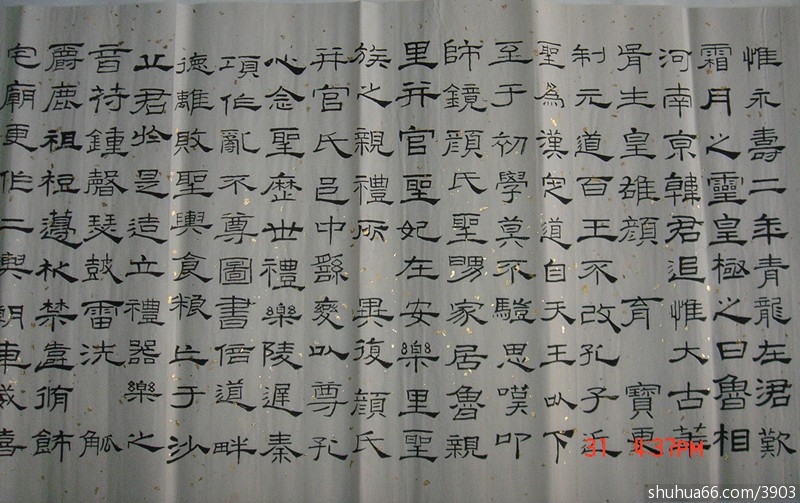 惟永壽二年青龍在涒歎
霜月之靈皇極之日魯相
河南京韓君追惟大古華
胥生皇雄顏 育 寶
制元道百王不改孔子近
聖為漢定道自天王以下
至于初學莫不驥思嘆卬
師鏡顏氏聖舅家居魯親
里并官聖妃在安樂里聖
族之親禮所 異復顏氏
并官氏邑中繇發以尊孔
心念聖歷世禮樂陵遲秦
項作亂不尊圖書倍道畔
德離敗聖輿食糧亡于沙
丘君於是造立禮器樂之
音符鍾磬瑟鼓雷洗 觚
爵鹿祖梪籩柉禁壺脩飾
宅廟更作二輿朝車威熹
31 4:37PM
shuhua66.com/3903